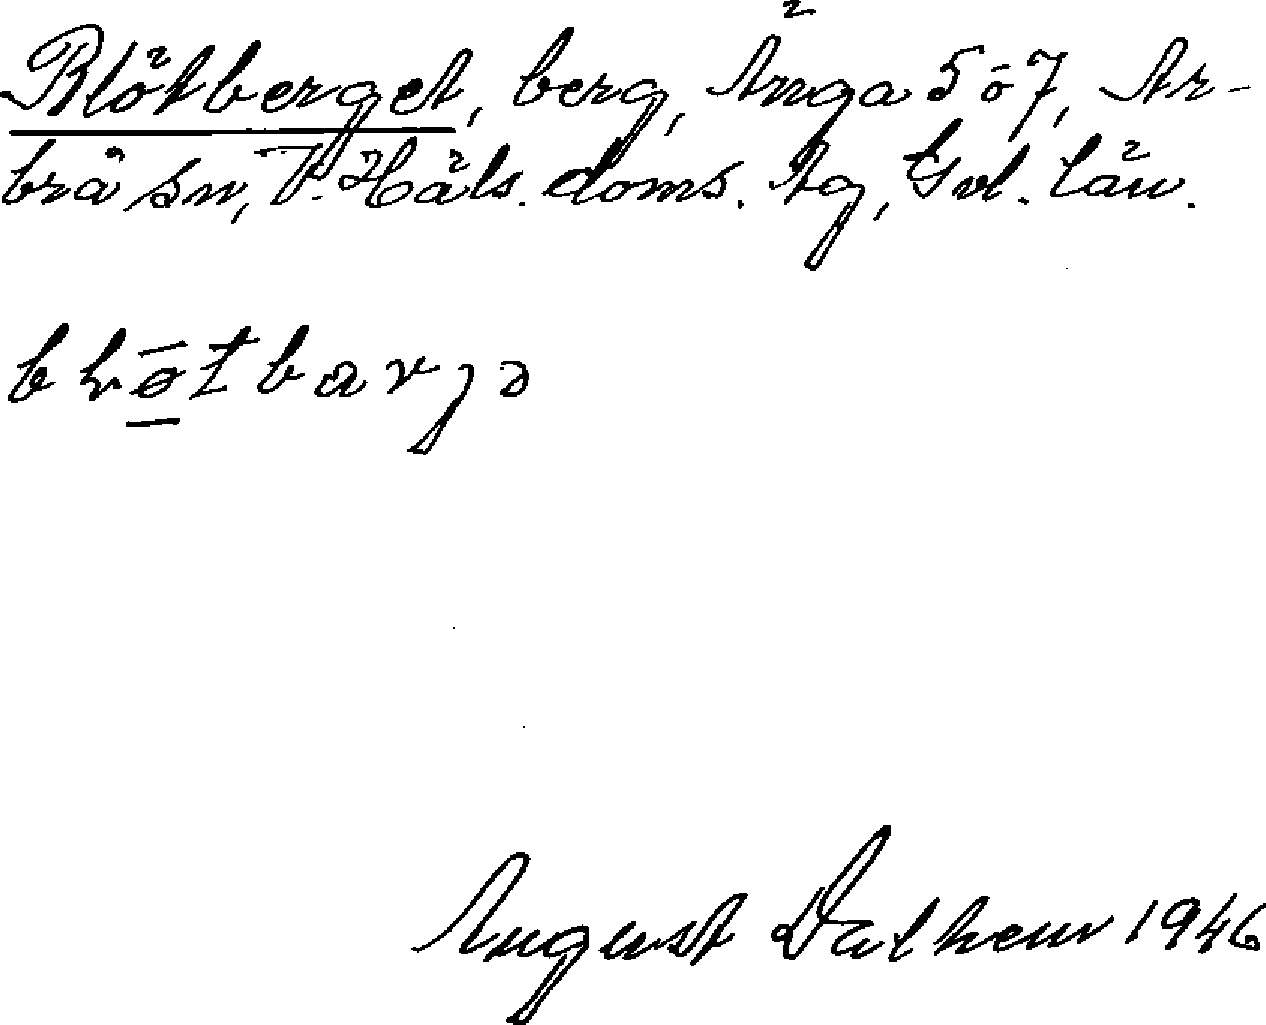 Blötberget, berg, Änga 5 ö 7, Ar-
brå sn, V. Häls. doms. tg, Gvl. län.
August Dalhem 1946